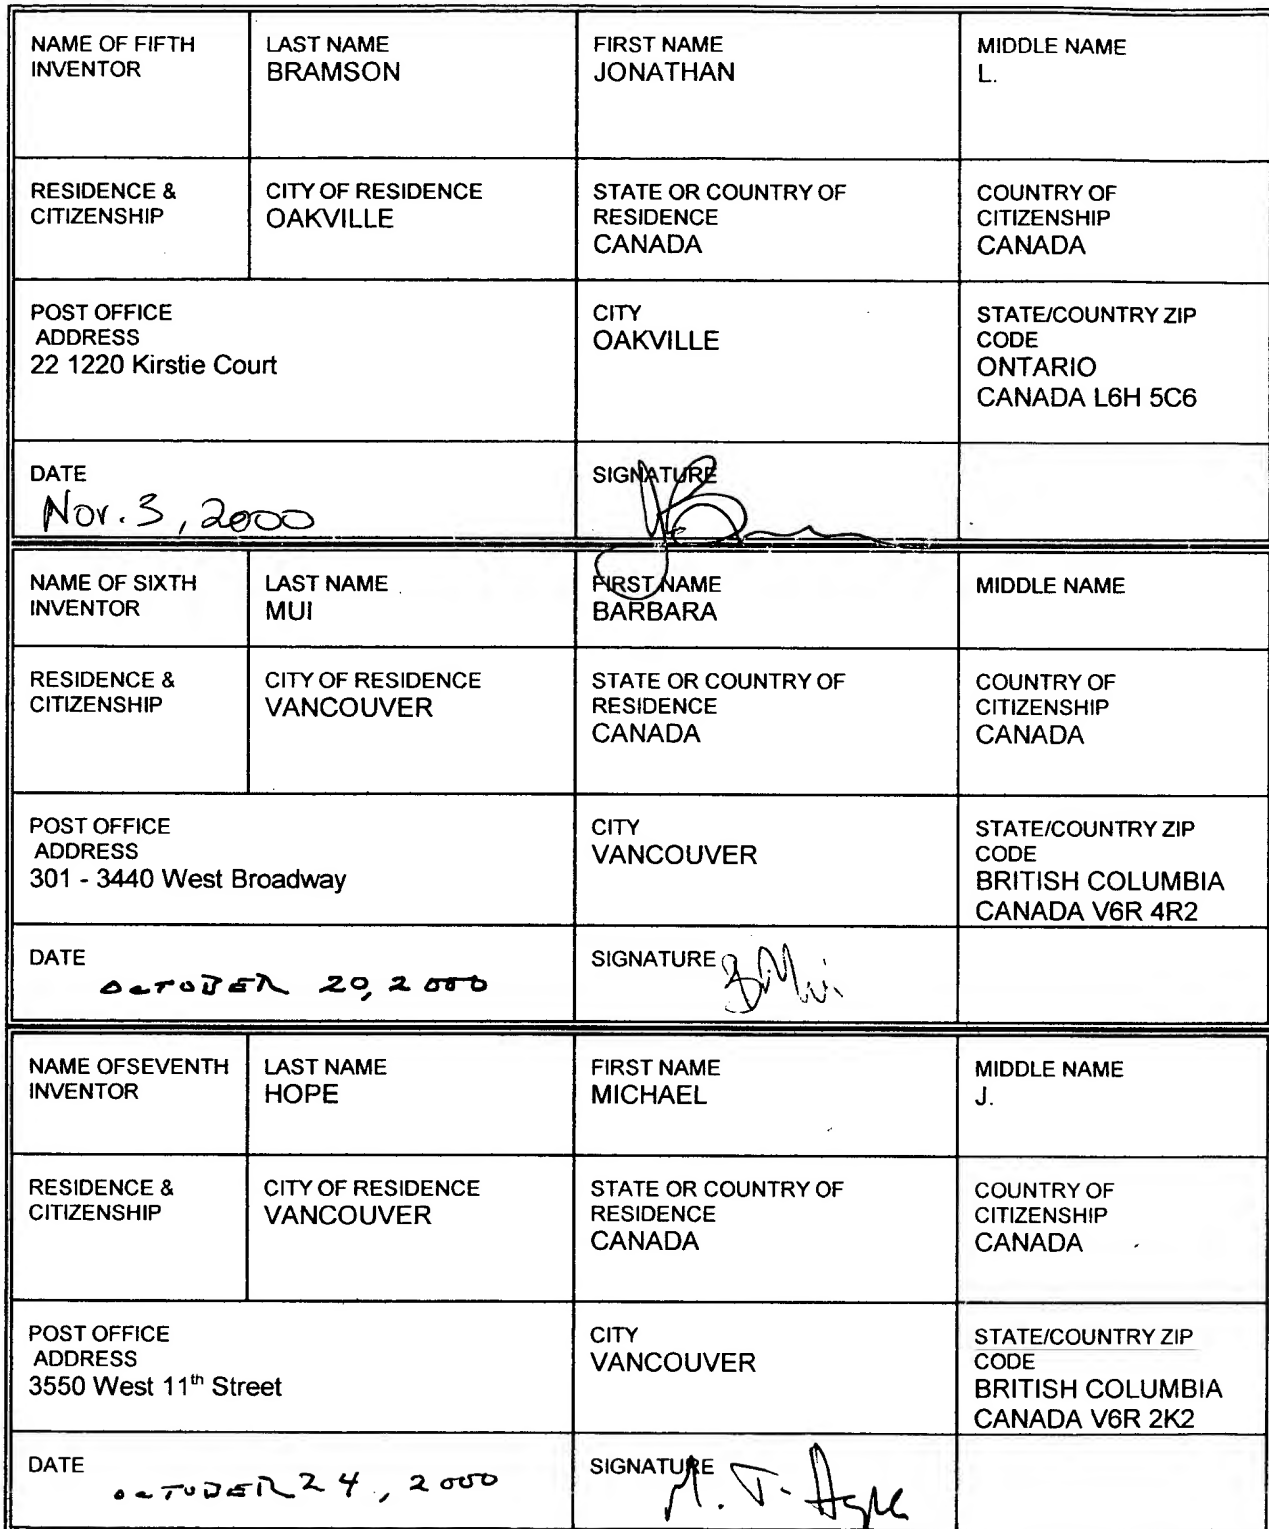 NAME OF FIFTH INVENTOR
LAST NAME
BRAMSON
FIRST NAME
JONATHAN
MIDDLE NAME
L.
RESIDENCE &
CITIZENSHIP
CITY OF RESIDENCE
OAKVILLE
STATE OR COUNTRY OF
RESIDENCE
CANADA
COUNTRY OF
CITIZENSHIP
CANADA
POST OFFICE
ADDRESS
22 1220 Kirstie Court
CITY
OAKVILLE
STATE/COUNTRY ZIP
CODE
ONTARIO
CANADA L6H 5C6
DATE
Nov. 3, 2000
SIGNATURE
NAME OF SIXTH
INVENTOR
LAST NAME
MUI
FIRST NAME
BARBARA
MIDDLE NAME
RESIDENCE &
CITIZENSHIP
CITY OF RESIDENCE
VANCOUVER
STATE OR COUNTRY OF
RESIDENCE
CANADA
COUNTRY OF
CITIZENSHIP
CANADA
POST OFFICE
ADDRESS
301 - 3440 West Broadway
CITY
VANCOUVER
STATE/COUNTRY ZIP
CODE
BRITISH COLUMBIA
CANADA V6R 4R2
DATE
OCTOBER 20, 2000
SIGNATURE
B. Mui
NAME OFSEVENTH
INVENTOR
LAST NAME
HOPE
FIRST NAME
MICHAEL
MIDDLE NAME
J.
RESIDENCE &
CITIZENSHIP
CITY OF RESIDENCE
VANCOUVER
STATE OR COUNTRY OF
RESIDENCE
CANADA
COUNTRY OF
CITIZENSHIP
CANADA
POST OFFICE
ADDRESS
3550 West 11th Street
CITY
VANCOUVER
STATE/COUNTRY ZIP
CODE
BRITISH COLUMBIA
CANADA V6R 2K2
DATE
OCTOBER 24, 2000
SIGNATURE
M. J. Hope